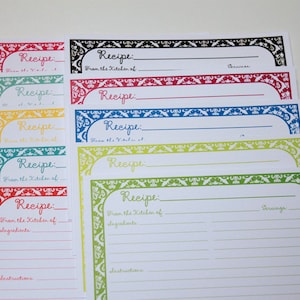 Recipe:
From the Kitchen of
Recipe:
Recipe:
Recipe:
Recipe:
From the Kitchen of
Ingredients:
Instructions:
Recipe:
From the Kitchen of
Recipe:
Recipe:
Recipe:
Recipe:
From the Kitchen of
Ingredients:
Instructions: